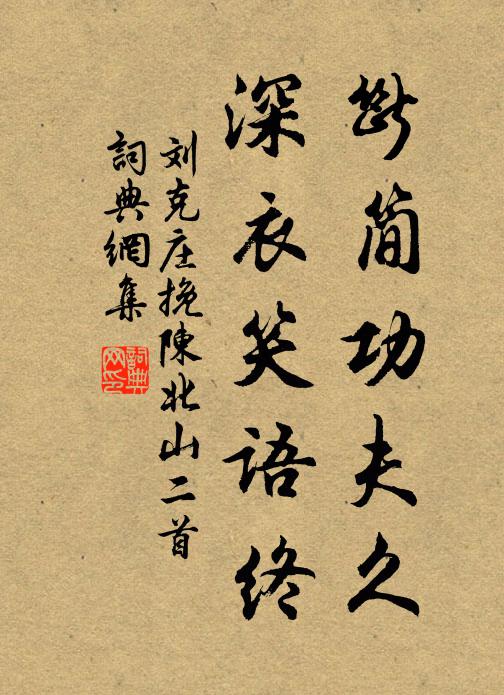 断简功夫久
深衣笑语终
刘克庄挽陳北山二首
詞典網集
詞典网印